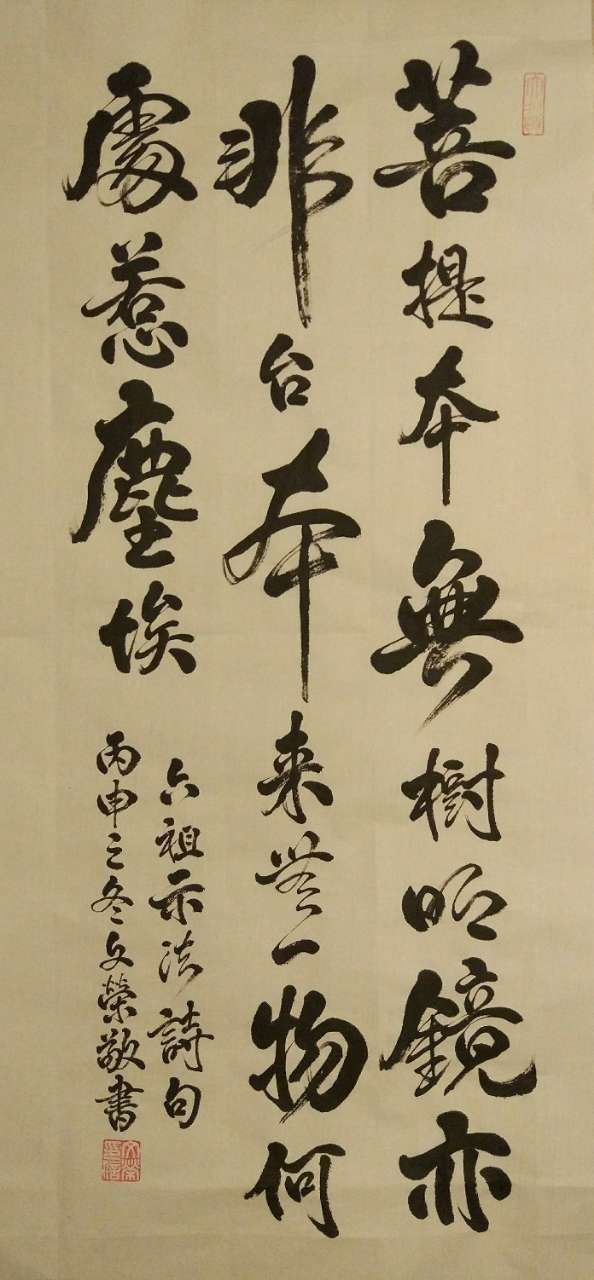 菩提本無樹明鏡亦
非台本来無一物何
處惹塵埃
六祖示法詩句
丙申之冬文榮敬書